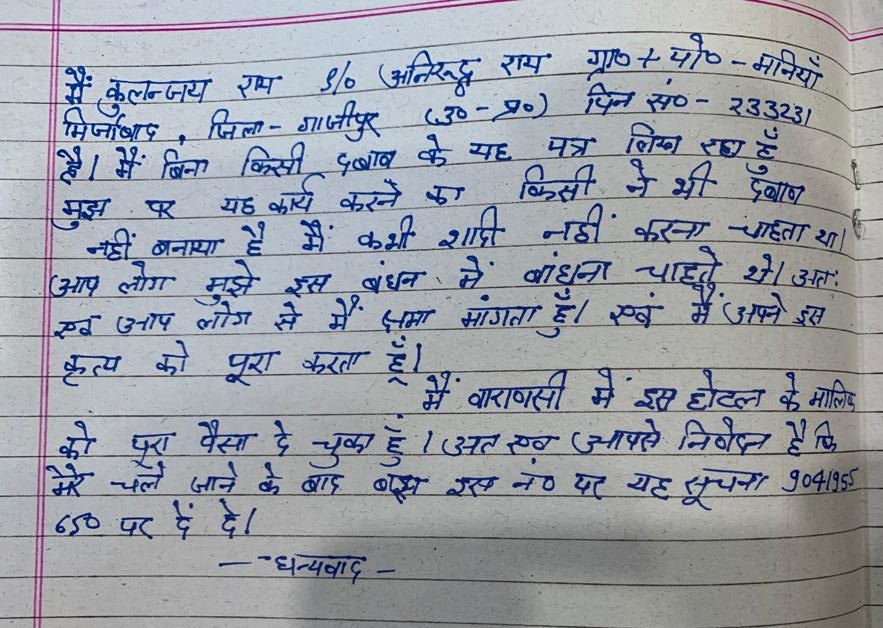 मैं कुलन्जय राय S/o अनिरुद्ध राय ग्रा० + पो० - मनियाँ
मिर्जाबाद, जिला - गाजीपुर (उ०-प्र०) पिन सं० - 233231
है। मैं बिना किसी दबाव के यह पत्र लिख रहा हूँ
मुझ पर यह कार्य करने का किसी ने भी दबाव
नहीं बनाया है मैं कभी शादी नहीं करना चाहता था।
आप लोग मुझे इस बंधन में बांधना चाहते थे। अतः
एवं आप लोग से मैं क्षमा मांगता हूँ। एवं मैं अपने इस
कृत्य को पूरा करता हूँ।
मैं वाराणसी में इस होटल के मालिक
को पूरा पैसा दे चुका हूँ। अत एव आपसे निवेदन है कि
मेरे चले जाने के बाद इस नं० पर यह सूचना 9041955
650 पर दें दे।
— धन्यवाद —